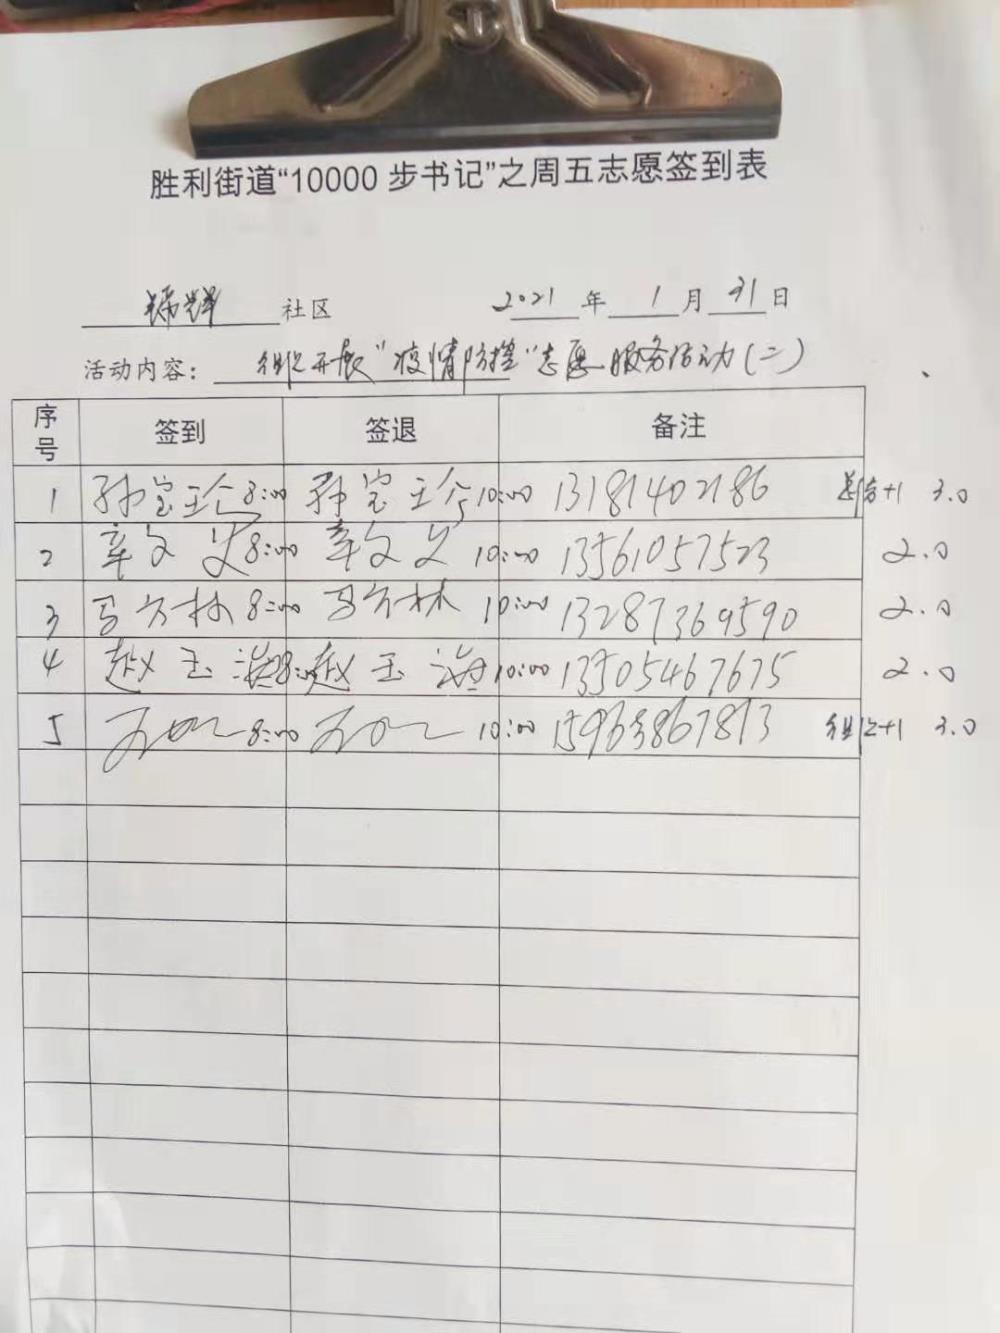 胜利街道“10000步书记”之周五志愿签到表
锦华社区 2021年1月31日
活动内容：组织开展“疫情防控”志愿服务活动(二)
序号 签到 签退 备注
1 孙宝珍 8:00 孙宝珍 10:00 13181402186 +1 3.0
2 辛文义 8:00 辛文义 10:00 13561057523 2.0
3 马方林 8:00 马方林 10:00 13287369590 2.0
4 赵玉海 8:00 赵玉海 10:00 13505467675 2.0
5 8:00 10:00 15963867813 组织+1 3.0